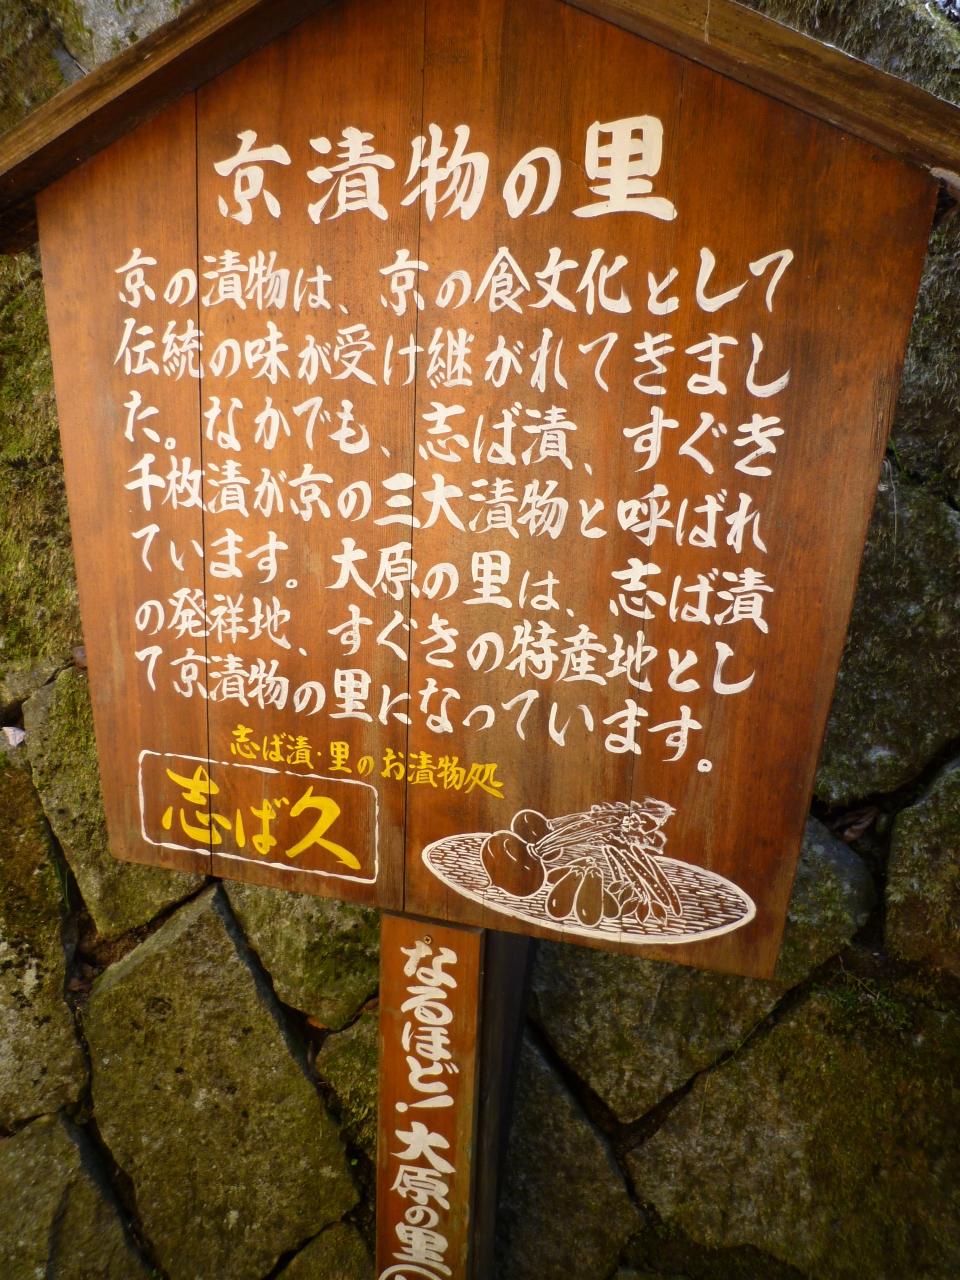 京漬物の里
京の漬物は、京の食文化として
伝統の味が受け継がれてきまし
た。なかでも、志ば漬、すぐき
千枚漬が京の三大漬物と呼ばれ
ています。大原の里は、志ば漬
の発祥地、すぐきの特産地とし
て京漬物の里になっています。
志ば漬・里のお漬物処
志ば久
なるほど!大原の里